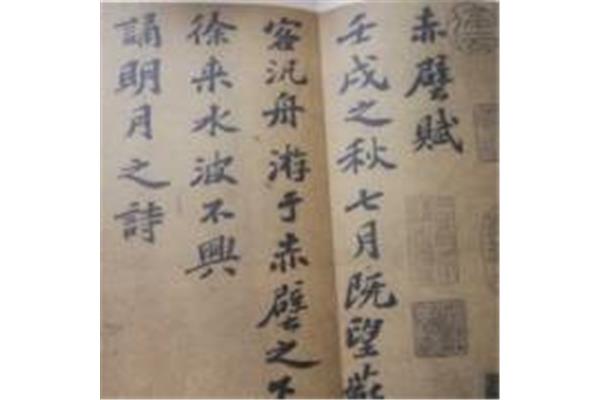 赤壁賦
壬戌之秋七月既望
客汎舟游于赤壁之下
徐来水波不興
誦明月之詩